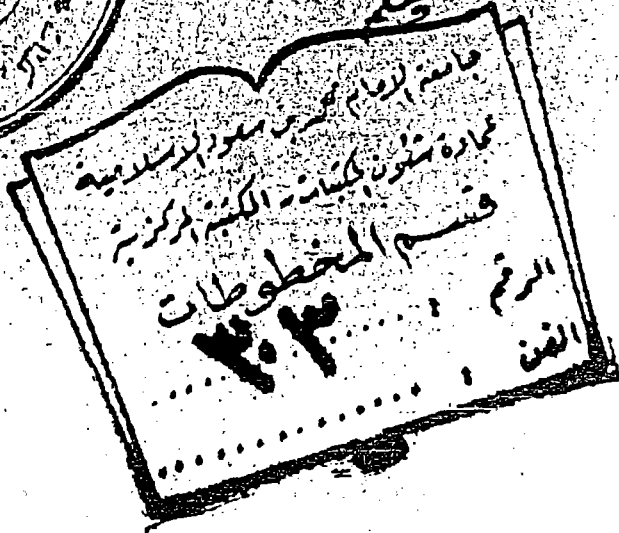 جامعة الإمام محمد بن سعود الإسلامية
عمادة شئون المكتبات - المكتبة المركزية
قسم المخطوطات
الرقم : ٣٠٣
الفن :